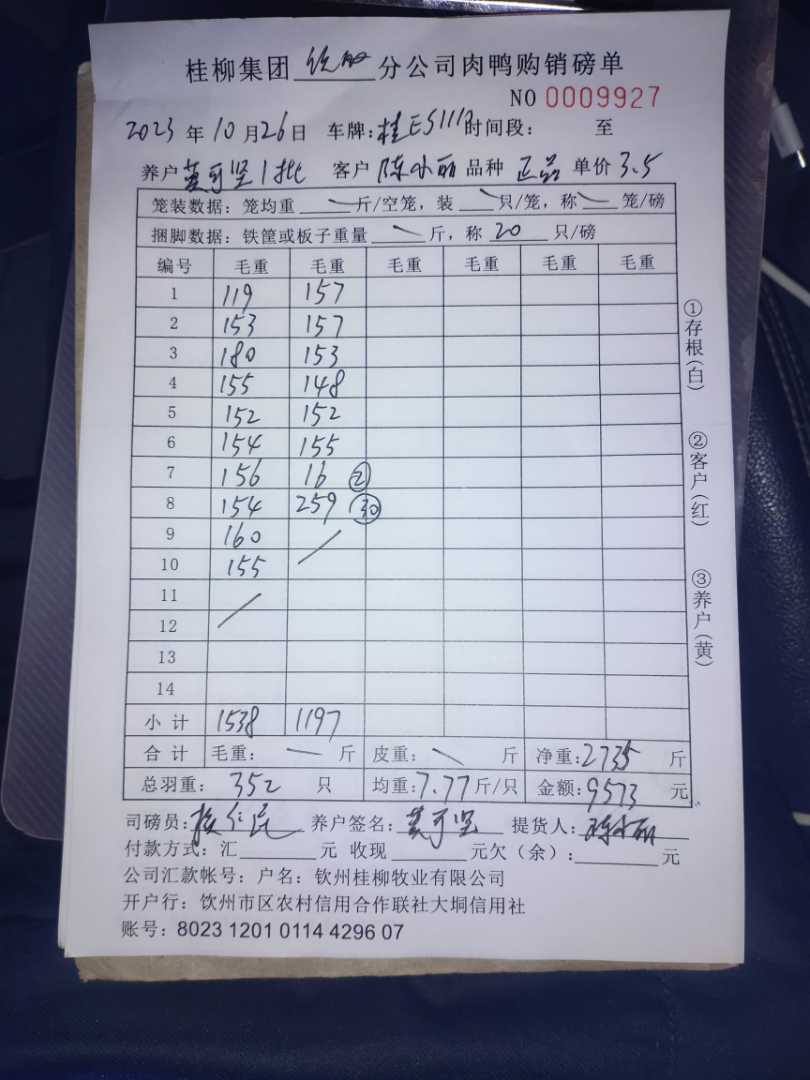 桂柳集团 钦州 分公司肉鸭购销磅单
NO 0009927
2023 年 10 月 26 日 车牌: 桂E 时间段: 至
养户 莫可坚1批 客户 陈小丽 品种 正品 单价 3.5
笼装数据: 笼均重 斤/空笼, 装 只/笼, 称 笼/磅
捆脚数据: 铁筐或板子重量 斤, 称 20 只/磅
编号 毛重 毛重 毛重 毛重 毛重 毛重
1 119 157
2 153 157
3 180 153
4 155 148
5 152 152
6 154 155
7 156 16 ②
8 154 259 ㉚
9 160
10 155
11
12
13
14
小计 1538 1197
合计 毛重: 斤 皮重: 斤 净重: 2735 斤
总羽重: 352 只 均重: 7.77 斤/只 金额: 9573 元
司磅员: 养户签名: 莫可坚 提货人: 陈小丽
付款方式: 汇 元 收现 元欠(余): 元
公司汇款帐号: 户名: 钦州桂柳牧业有限公司
开户行: 钦州市区农村信用合作联社大垌信用社
账号: 8023 1201 0114 4296 07
①存根(白)
②客户(红)
③养户(黄)